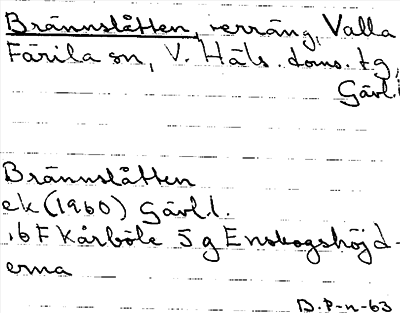 Brännslåtten, terräng, Valla
Färila sn, V. Häls. doms. tg,
Gävl.l
Brännslåtten
ek (1960) Gävl.l.
16F Kårböle 5g Enskogshöjd-
erna
D.P-n-63